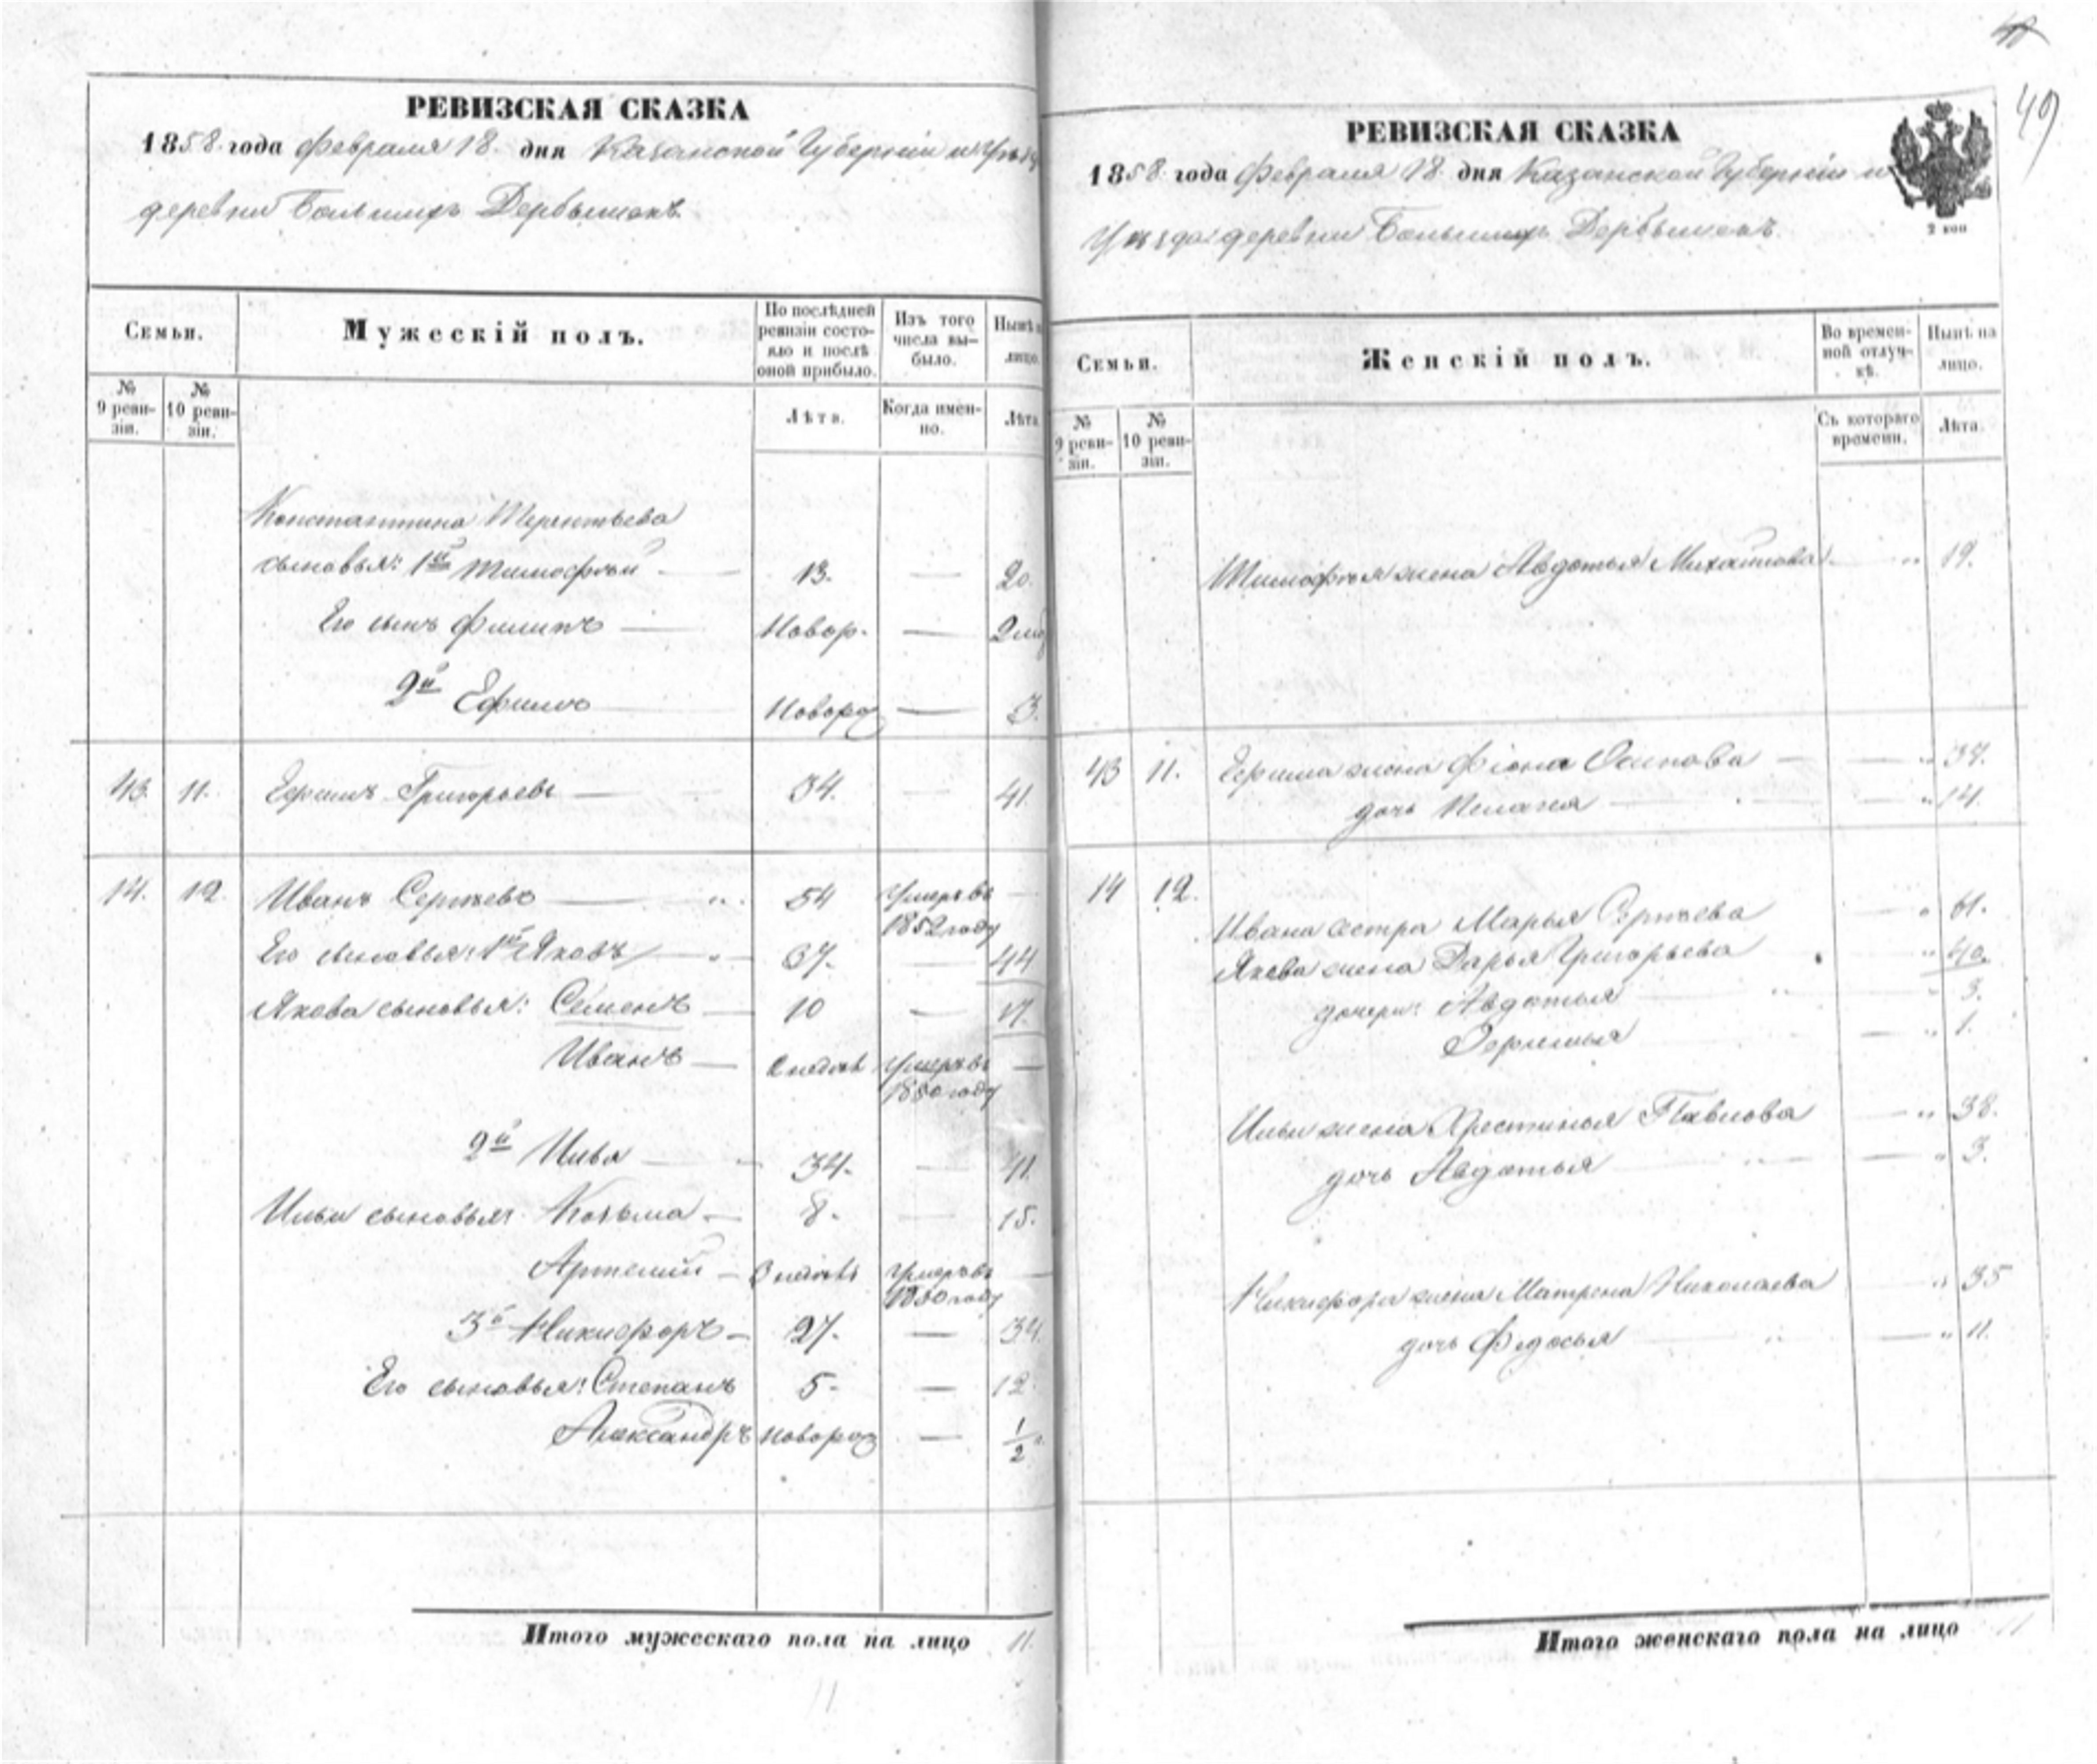 РЕВИЗСКАЯ СКАЗКА
1858 года Февраля 18 дня Казанской Губерніи и Уѣзда
деревни Большихъ Дербышекъ
Семьи.
Мужескій полъ.
По послѣдней ревизіи состояло и послѣ оной прибыло.
Изъ того числа выбыло.
Нынѣ на лицо.
№ 9 ревизіи.
№ 10 ревизіи.
Лѣта.
Когда именно.
Лѣта
Константина Терентьева
сыновья: 1й Тимофѣй — 13. — 20.
Его сынъ Филипъ — Новор. —
2й Ефимъ Новор — 3.
13. 11. Ефимъ Григорьевъ — 34. — 41.
14. 12. Иванъ Сергѣевъ — 54 Умеръ въ 1852 году —
Его сыновья: 1й Яковъ — 37. — 44
Якова сыновья: Семенъ — 10 — 17.
Иванъ — Умеръ въ 1850 году —
2й Илья — 34. — 41.
Ильи сыновья: Козьма — 8. — 15.
Артемий — Умеръ въ 1850 году —
3й Никифоръ — 27. — 34.
Его сыновья: Степанъ 5. — 12.
Александръ Новорож — 1/2
Итого мужескаго пола на лицо 11.
11
49
РЕВИЗСКАЯ СКАЗКА
1858 года Февраля 18 дня Казанской Губерніи и
Уѣзда деревни Большихъ Дербышекъ
2 коп
Семьи.
Женскій полъ.
Во временной отлучкѣ.
Нынѣ на лицо.
№ 9 ревизіи.
№ 10 ревизіи.
Съ котораго времени.
Лѣта.
Тимофѣя жена Авдотья Михайлова — 19.
13 11. Ефима жена Фіона Осипова — 37.
дочь Пелагея — 14.
14 12.
Ивана сестра Марья Сергѣева — 61.
Якова жена Дарья Григорьева 40.
дочери: Авдотья 3.
— 1.
Ильи жена Христинья Павлова — 38.
дочь Авдотья — 3.
Никифора жена Матрена Николаева — 35
дочь Федосья — 11.
Итого женскаго пола на лицо 11